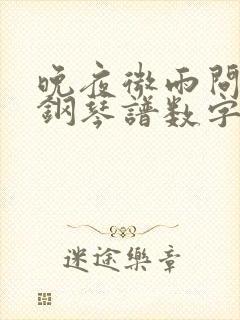 晚夜微雨問
鋼琴譜数字
迷途樂章